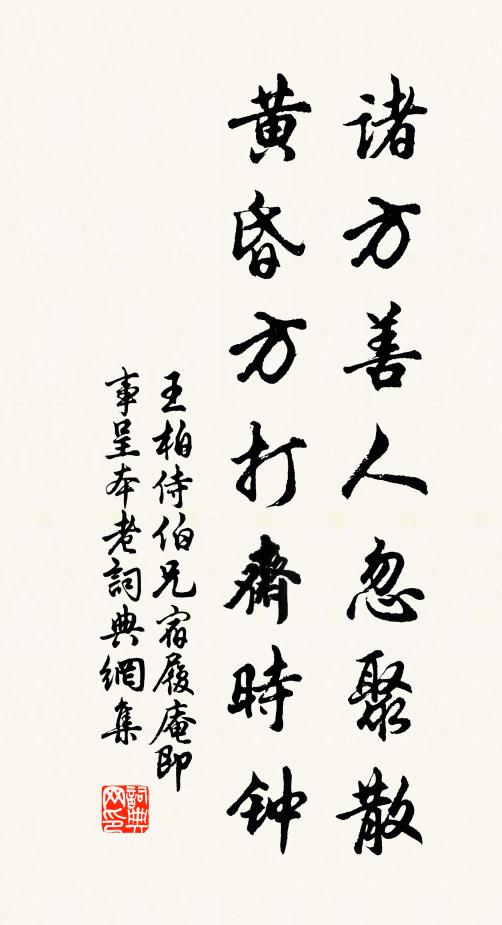 诸方善人忽聚散
黄昏方打齋時钟
王柏侍伯兄宿履庵即
事呈本老詞典網集
詞典网印